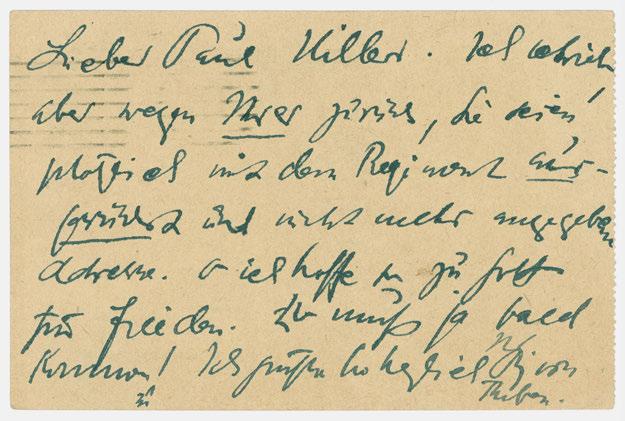 Lieber Paul Hiller. Ich schrieb
aber wegen Ihrer zurück, Sie seien
plötzlich mit dem Regiment aus-
gerückt und nicht mehr angegebene
Adresse. O ich hoffe so zu Gott
für Frieden. Er muß ja bald
kommen! Ich grüße herzlich
von
Theben.